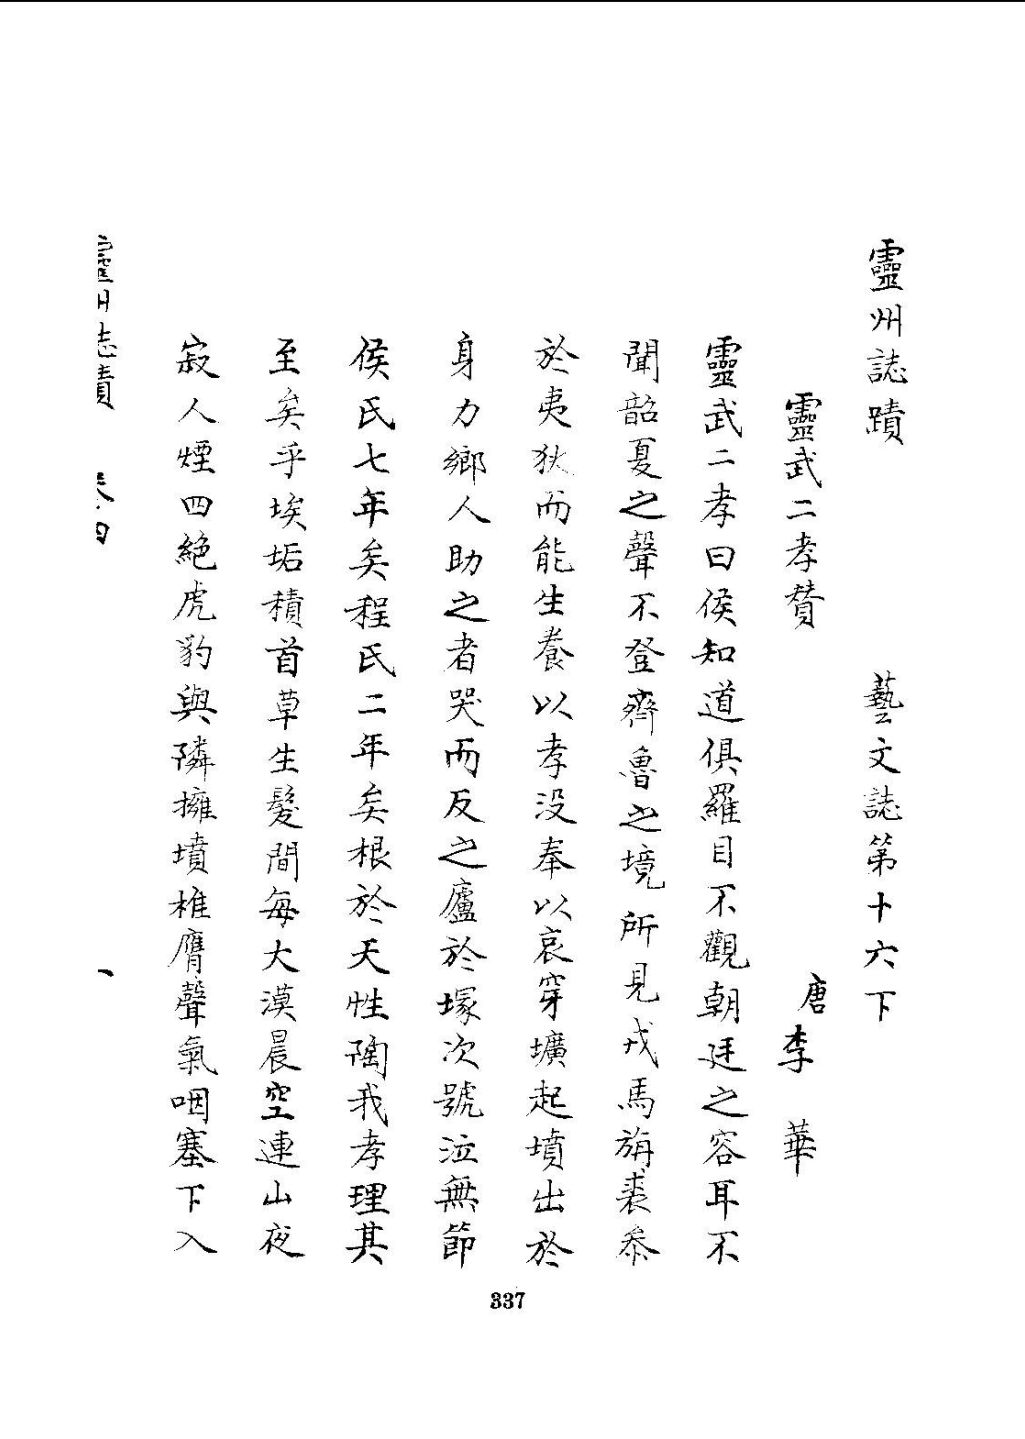 靈州誌蹟　藝文誌第十六下
靈武二孝贊　唐李華
靈武二孝曰侯知道俱羅目不觀朝廷之容耳不
聞韶夏之聲不登齊魯之境所見戎馬旃裘忝
於夷狄而能生養以孝沒奉以哀穿壙起墳出於
身力鄉人助之者哭而反之廬於塚次號泣無節
侯氏七年矣程氏二年矣根於天性陶我孝理其
至矣乎埃垢積首草生髮間每大漠晨空連山夜
寂人煙四絕虎豹與隣擁墳椎膺聲氣咽塞下入
靈州誌蹟　卷四　一
337